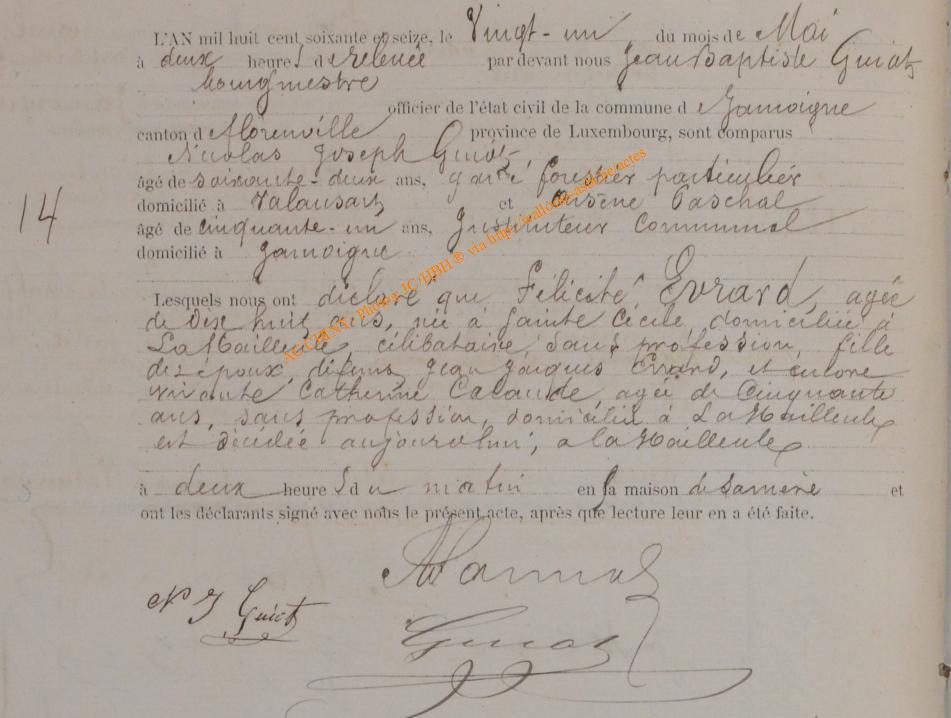 L'AN mil huit cent soixante et seize, le Vingt-un du mois de Mai
à deux heures de relevée par devant nous Jean Baptiste Guiot
bourgmestre
officier de l'état civil de la commune de Jamoigne
canton de Florenville province de Luxembourg, sont comparus
Nicolas Joseph Guiot
âgé de soixante-deux ans, garde forestier particulier
domicilié à Valansart et Arsène Paschal
âgé de cinquante-un ans, Instituteur Communal
domicilié à Jamoigne
14
Lesquels nous ont déclaré que Félicité Evrard, agée
de dix huit ans, née à Sainte Cécile, domiciliée à
La Hailleule, célibataire, sans profession, fille
des époux, défunt Jean Jacques Evrard, et encore
vivante Catherine agée de Cinquante
ans, sans profession, domiciliée à La Hailleule
est décédée aujourd'hui, a la Hailleule
à deux heures du matin en la maison de sa mère et
ont les déclarants signé avec nous le présent acte, après que lecture leur en a été faite.
N J Guiot
Guiot